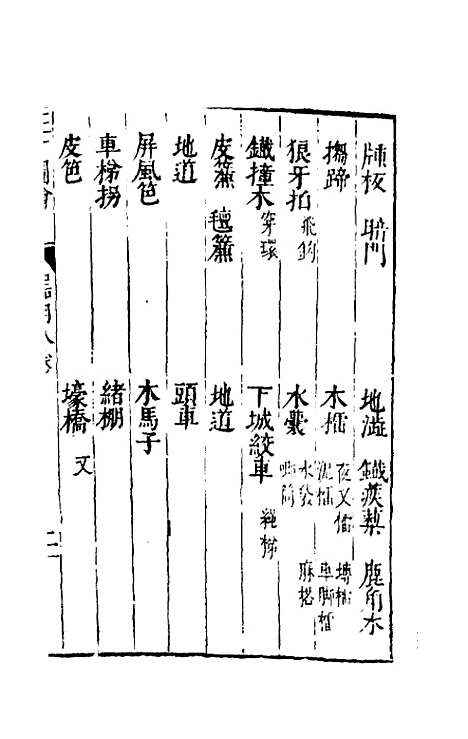 牐板 暗門 地澁 鐵蒺藜 鹿角木
搊蹄 木檑 夜叉檑 泥檑 塼檑 車脚檑
狼牙拍 飛鈎 水囊 水袋 唧筒 麻搭
鐵撞木 穿環 下城絞車 繩梯
皮簾 氊簾 地道
地道 頭車
屏風笆 木馬子
車梯拐 緒棚
皮笆 壕橋 又
圖會 器用八卷 二